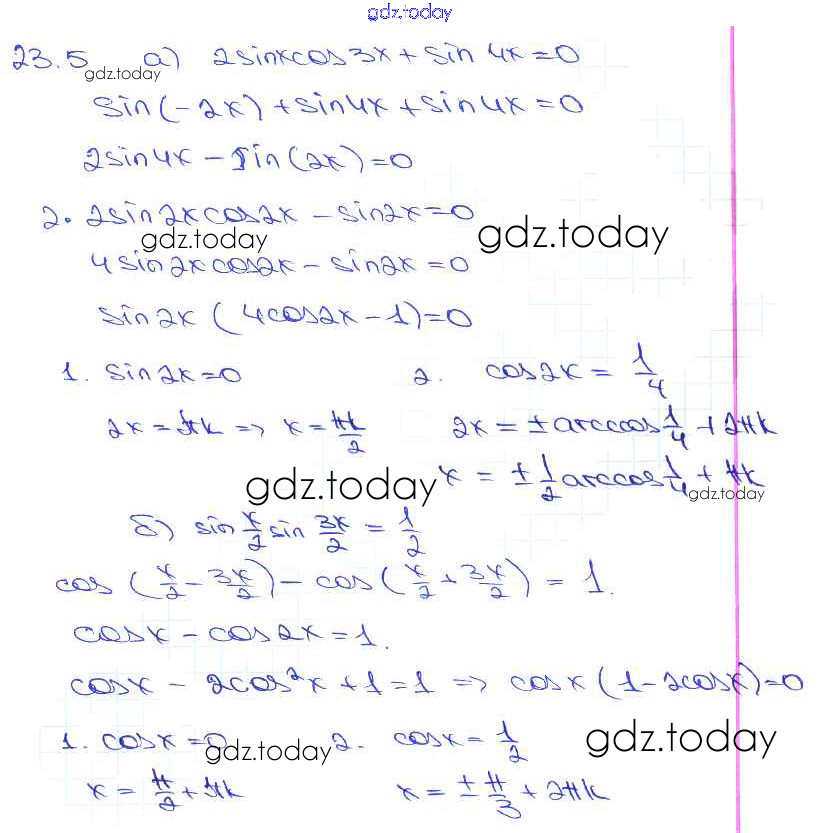 gdz.today
23.5 а) 2sinxcos3x + sin 4x = 0
gdz.today
sin(-2x) + sin4x + sin4x = 0
2sin4x - sin(2x) = 0
2. 2sin2xcos2x - sin2x = 0
gdz.today gdz.today
4sin2xcos2x - sin2x = 0
sin2x (4cos2x - 1) = 0
1. sin2x = 0 2. cos2x = 1/4
2x = πk => x = πk/2 2x = ± arccos 1/4 + 2πk
gdz.today x = ± 1/2 arccos 1/4 + πk gdz.today
б) sin x/2 sin 3x/2 = 1/2
cos (x/2 - 3x/2) - cos (x/2 + 3x/2) = 1.
cosx - cos2x = 1.
cosx - 2cos²x + 1 = 1 => cosx (1 - 2cosx) = 0
1. cosx = 0 gdz.today 2. cosx = 1/2 gdz.today
x = π/2 + πk x = ± π/3 + 2πk